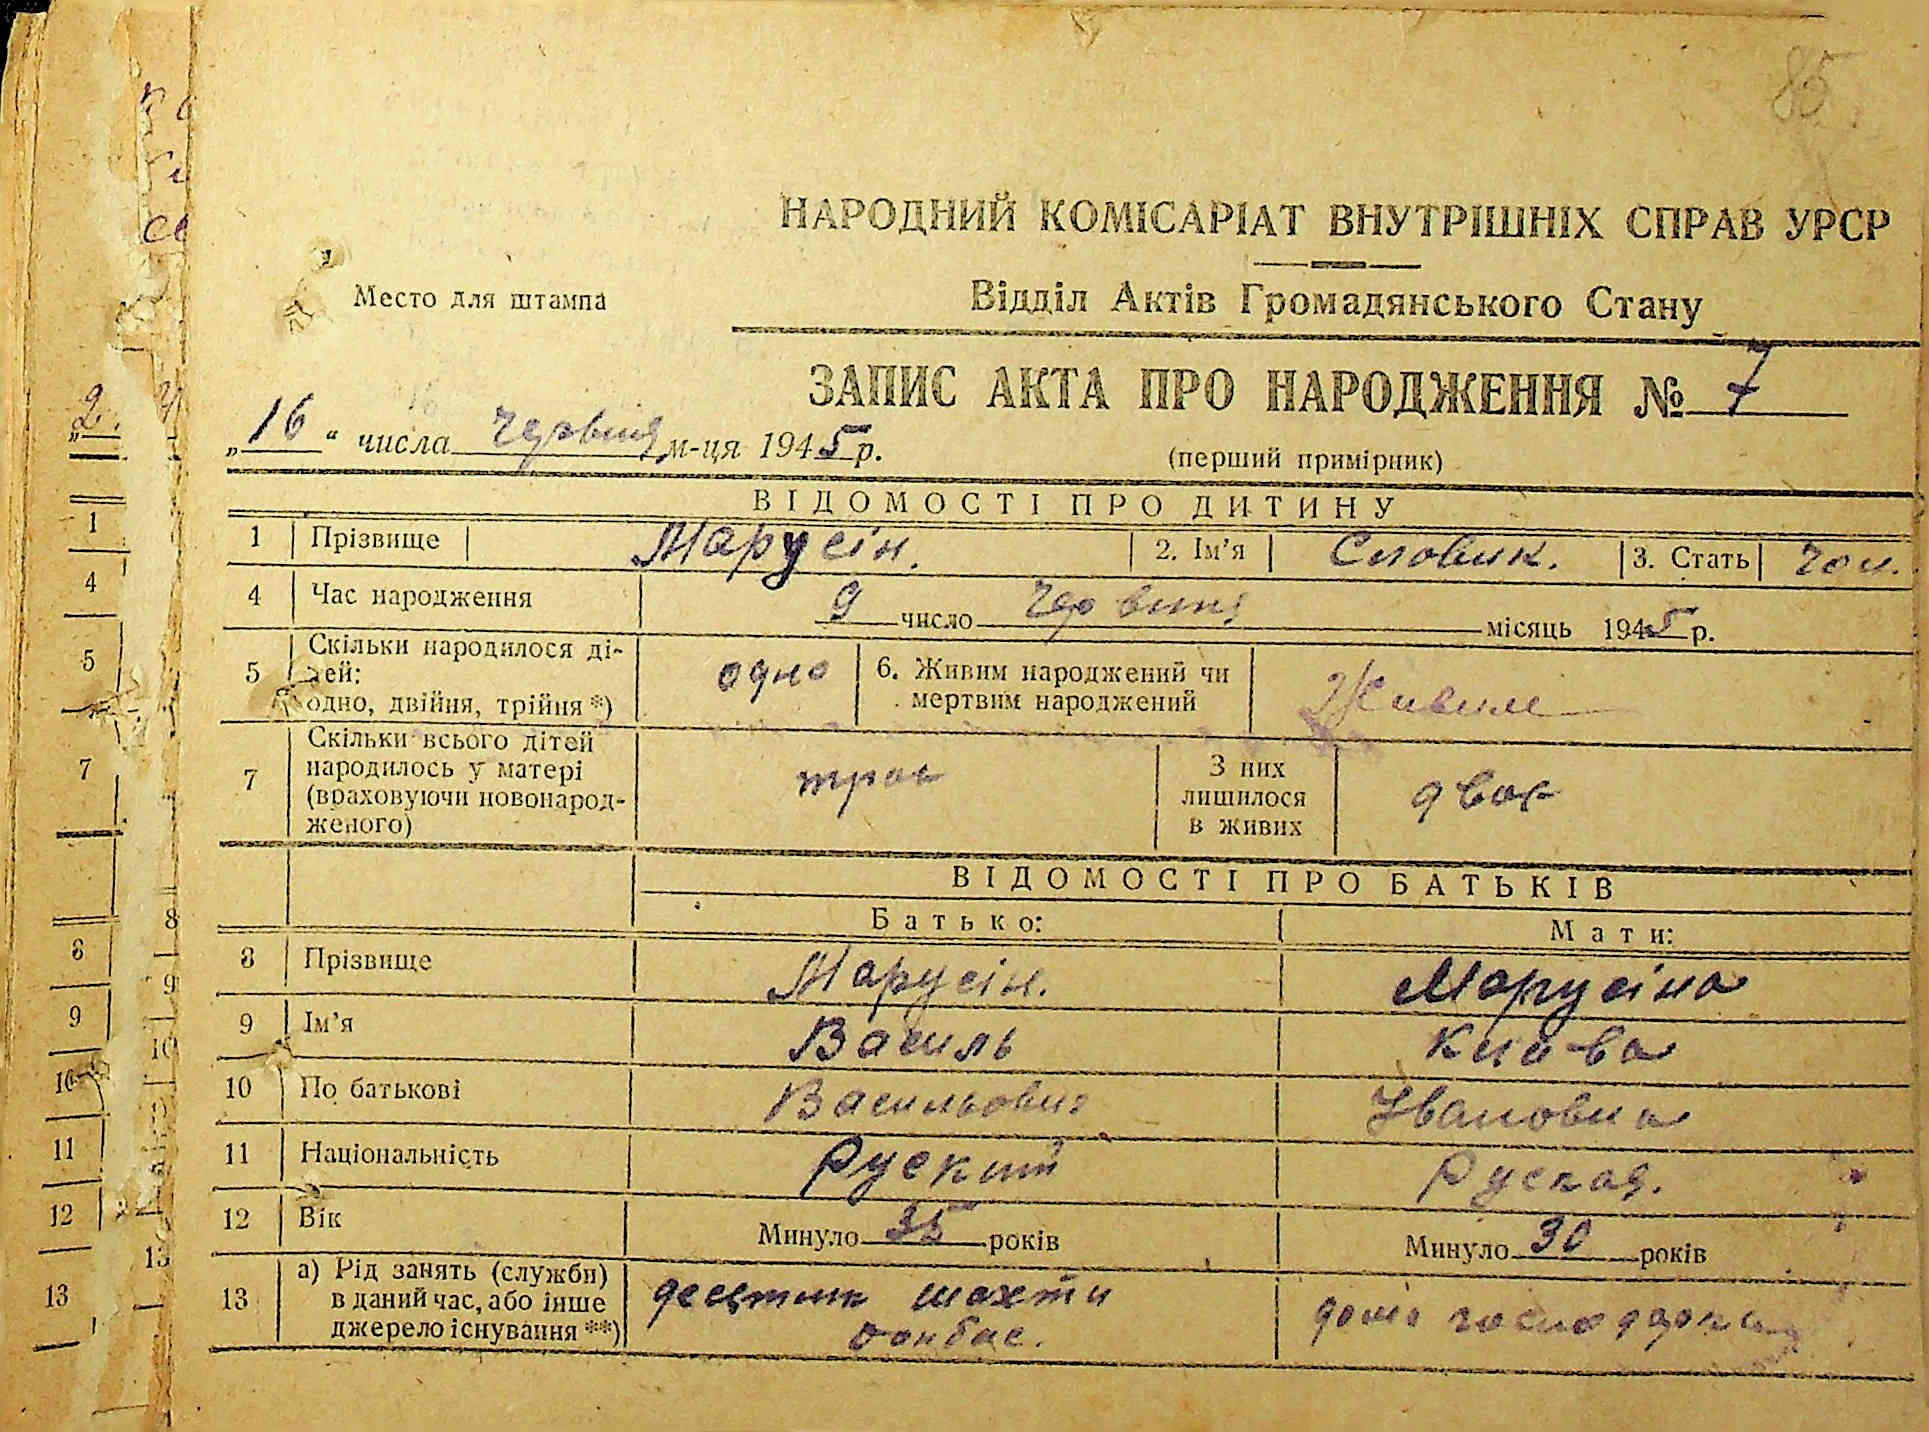 85
НАРОДНИЙ КОМІСАРІАТ ВНУТРІШНІХ СПРАВ УРСР
Место для штампа
Відділ Актів Громадянського Стану
ЗАПИС АКТА ПРО НАРОДЖЕННЯ № 7
„16“ числа червня м-ця 1945 р.
(перший примірник)
ВІДОМОСТІ ПРО ДИТИНУ
1 Прізвище Марусін. 2. Ім’я Словик. 3. Стать чол.
4 Час народження 9 число червня місяць 1945 р.
5 Скільки народилося ді-
тей:
одно, двійня, трійня *) одно 6. Живим народжений чи
мертвим народжений Живим
7 Скільки всього дітей
народилось у матері
(враховуючи новонарод-
женого) троє З них
лишилося
в живих двоє
ВІДОМОСТІ ПРО БАТЬКІВ
Батько: Мати:
8 Прізвище Марусін. Марусіна
9 Ім’я Василь
10 По батькові Васильович Ивановна
11 Національність Руский Руская.
12 Вік Минуло 35 років Минуло 30 років
13 а) Рід занять (служби)
в даний час, або інше
джерело існування **) десятник шахти
Донбас.
2.
1
4
5
7
8
9
10
11
12
13
8
9
10
13